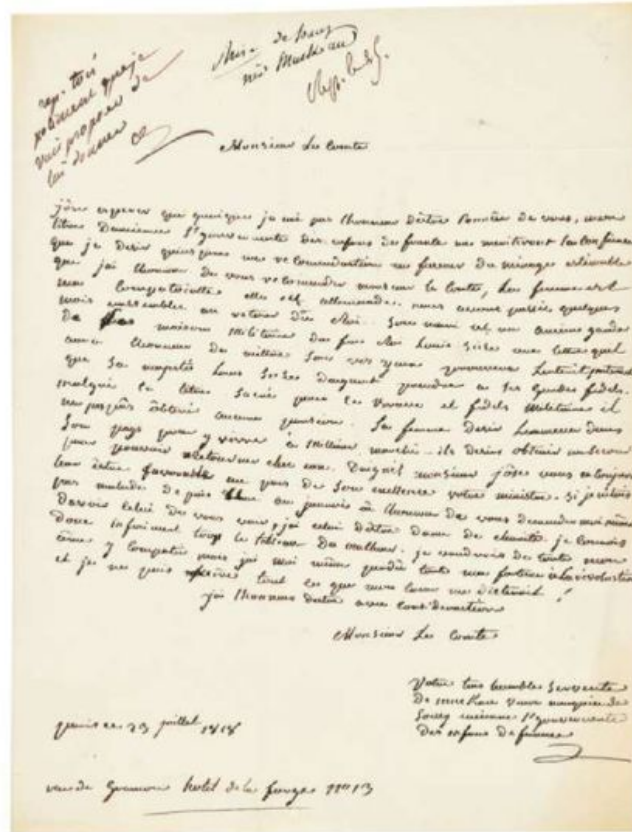 rep. toi
poliment que je
vais proposer de
lui donner
mise de Soucy
née Mackau
Monsieur Le Comte
j'ose esperer que quoique je n'aie pas l'honneur d'être connüe de vous, mon
titre d'ancienne s. gouvernante des enfans de france me meriteront la confiance
que je desir qu'inspire ma recomendation en faveur du menage estimable
que j'ai l'honneur de vous recomender monsieur le comte, la femme est
mon compatriotte elle est allemande. nous avons passée quelques
mois ensembles au retour du Roi. Son mari est un ancien garde
de la maison Militaire du feu Roi Louis Seize
avec l'honneur de mettre sous vos yeux l'interet
que Sa majesté Louis Seize daignoit prendre a ses gardes fidels.
malgré ce titre Sacré pour la bravoure et fidels Militaire il
n'a pas pûs obtenir aucune pension. La femme desir
son pays pour y vivre à meilleur marché. ils desire obtenir un secour
pour pouvoir retourner chez eux. Daignéz monsieur j'ose vous en conjurer
leur être favorable au près de Son excellence votre ministre. Si je n'étois
pas malade depuis un an j'aurois û l'honneur de vous demander moi même
davoir celui de vous voir, j'ai celui d'être dame de charité. je connois
donc infiniment trop le tableau du malheur. je voudrois de toute mon
âme y compatir mais j'ai moi même perdûe toute ma fortune à la révolution
et je ne puis tout ce que mon cœur me dicteroit !
j'ai l'honneur d'être avec consideration
Monsieur Le Comte
Votre très humble Servante
de mackau veuve marquise de
Soucy ancienne s. gouvernante
des enfans de france
paris ce 23 juillet 1818
rue de Grammont hotel de la n° 13